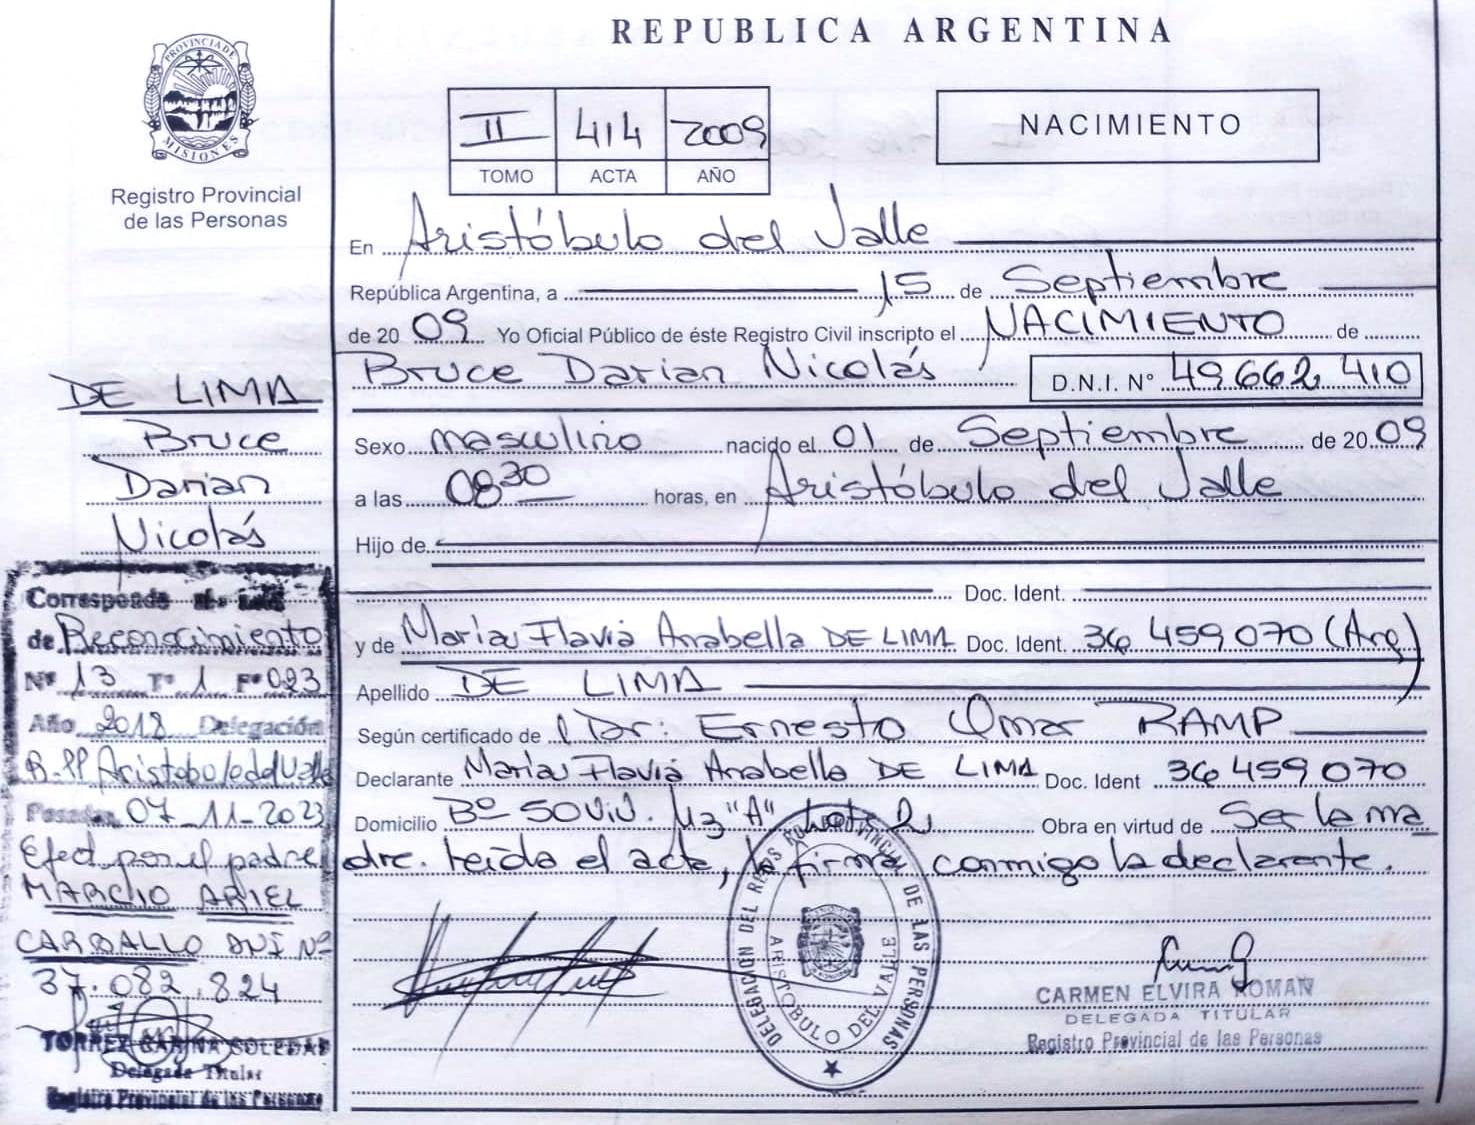 REPUBLICA ARGENTINA
PROVINCIA DE MISIONES
Registro Provincial
de las Personas
II 414 2009
TOMO ACTA AÑO
NACIMIENTO
En Aristóbulo del Valle
República Argentina, a 15 de Septiembre
de 2009 Yo Oficial Público de éste Registro Civil inscripto el NACIMIENTO de
Bruce Darian Nicolás D.N.I. N° 49.662.410
Sexo masculino nacido el 01 de Septiembre de 2009
a las 08 30 horas, en Aristóbulo del Valle
Hijo de
Doc. Ident.
y de María Flavia Anabella DE LIMA Doc. Ident. 36 459 070 (Arg)
Apellido DE LIMA
Según certificado de l Dr: Ernesto Omar RAMP
Declarante María Flavia Anabella DE LIMA Doc. Ident 36 459 070
Domicilio Bº 50 Viv. Mz "A" Lote 2 Obra en virtud de Ser la ma
dre. leída el acta, la firma conmigo la declarante.
DELEGACIÓN DEL REGISTRO PROVINCIAL DE LAS PERSONAS
ARISTOBULO DEL VALLE
CARMEN ELVIRA ROMAN
DELEGADA TITULAR
Registro Provincial de las Personas
DE LIMA
Bruce
Darian
Nicolás
Corresponde al
de Reconocimiento
Nº 13 Tº 1 Fº 023
Año 2018 Delegación
R.PP Aristobolo del Valle
Posadas, 07-11-2023
Efect por el padre
MARCIO ARIEL
CARBALLO DNI Nº
37.082.824
TORREZ CARINA SOLEDAD
Delegada Titular
Registro Provincial de las Personas